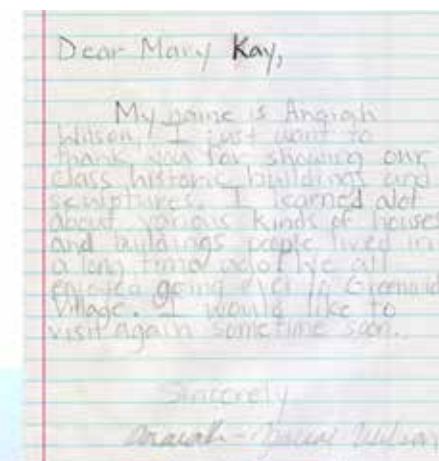 Dear Mary Kay,
My name is
Wilson, I just want to
thank you for showing our
class historic buildings and
sculptures. I learned alot
about various kinds of houses
and buildings people lived in
a long time all
enjoyed going over to
Village. I would like to
visit again sometime soon.
Sincerely
Wilson